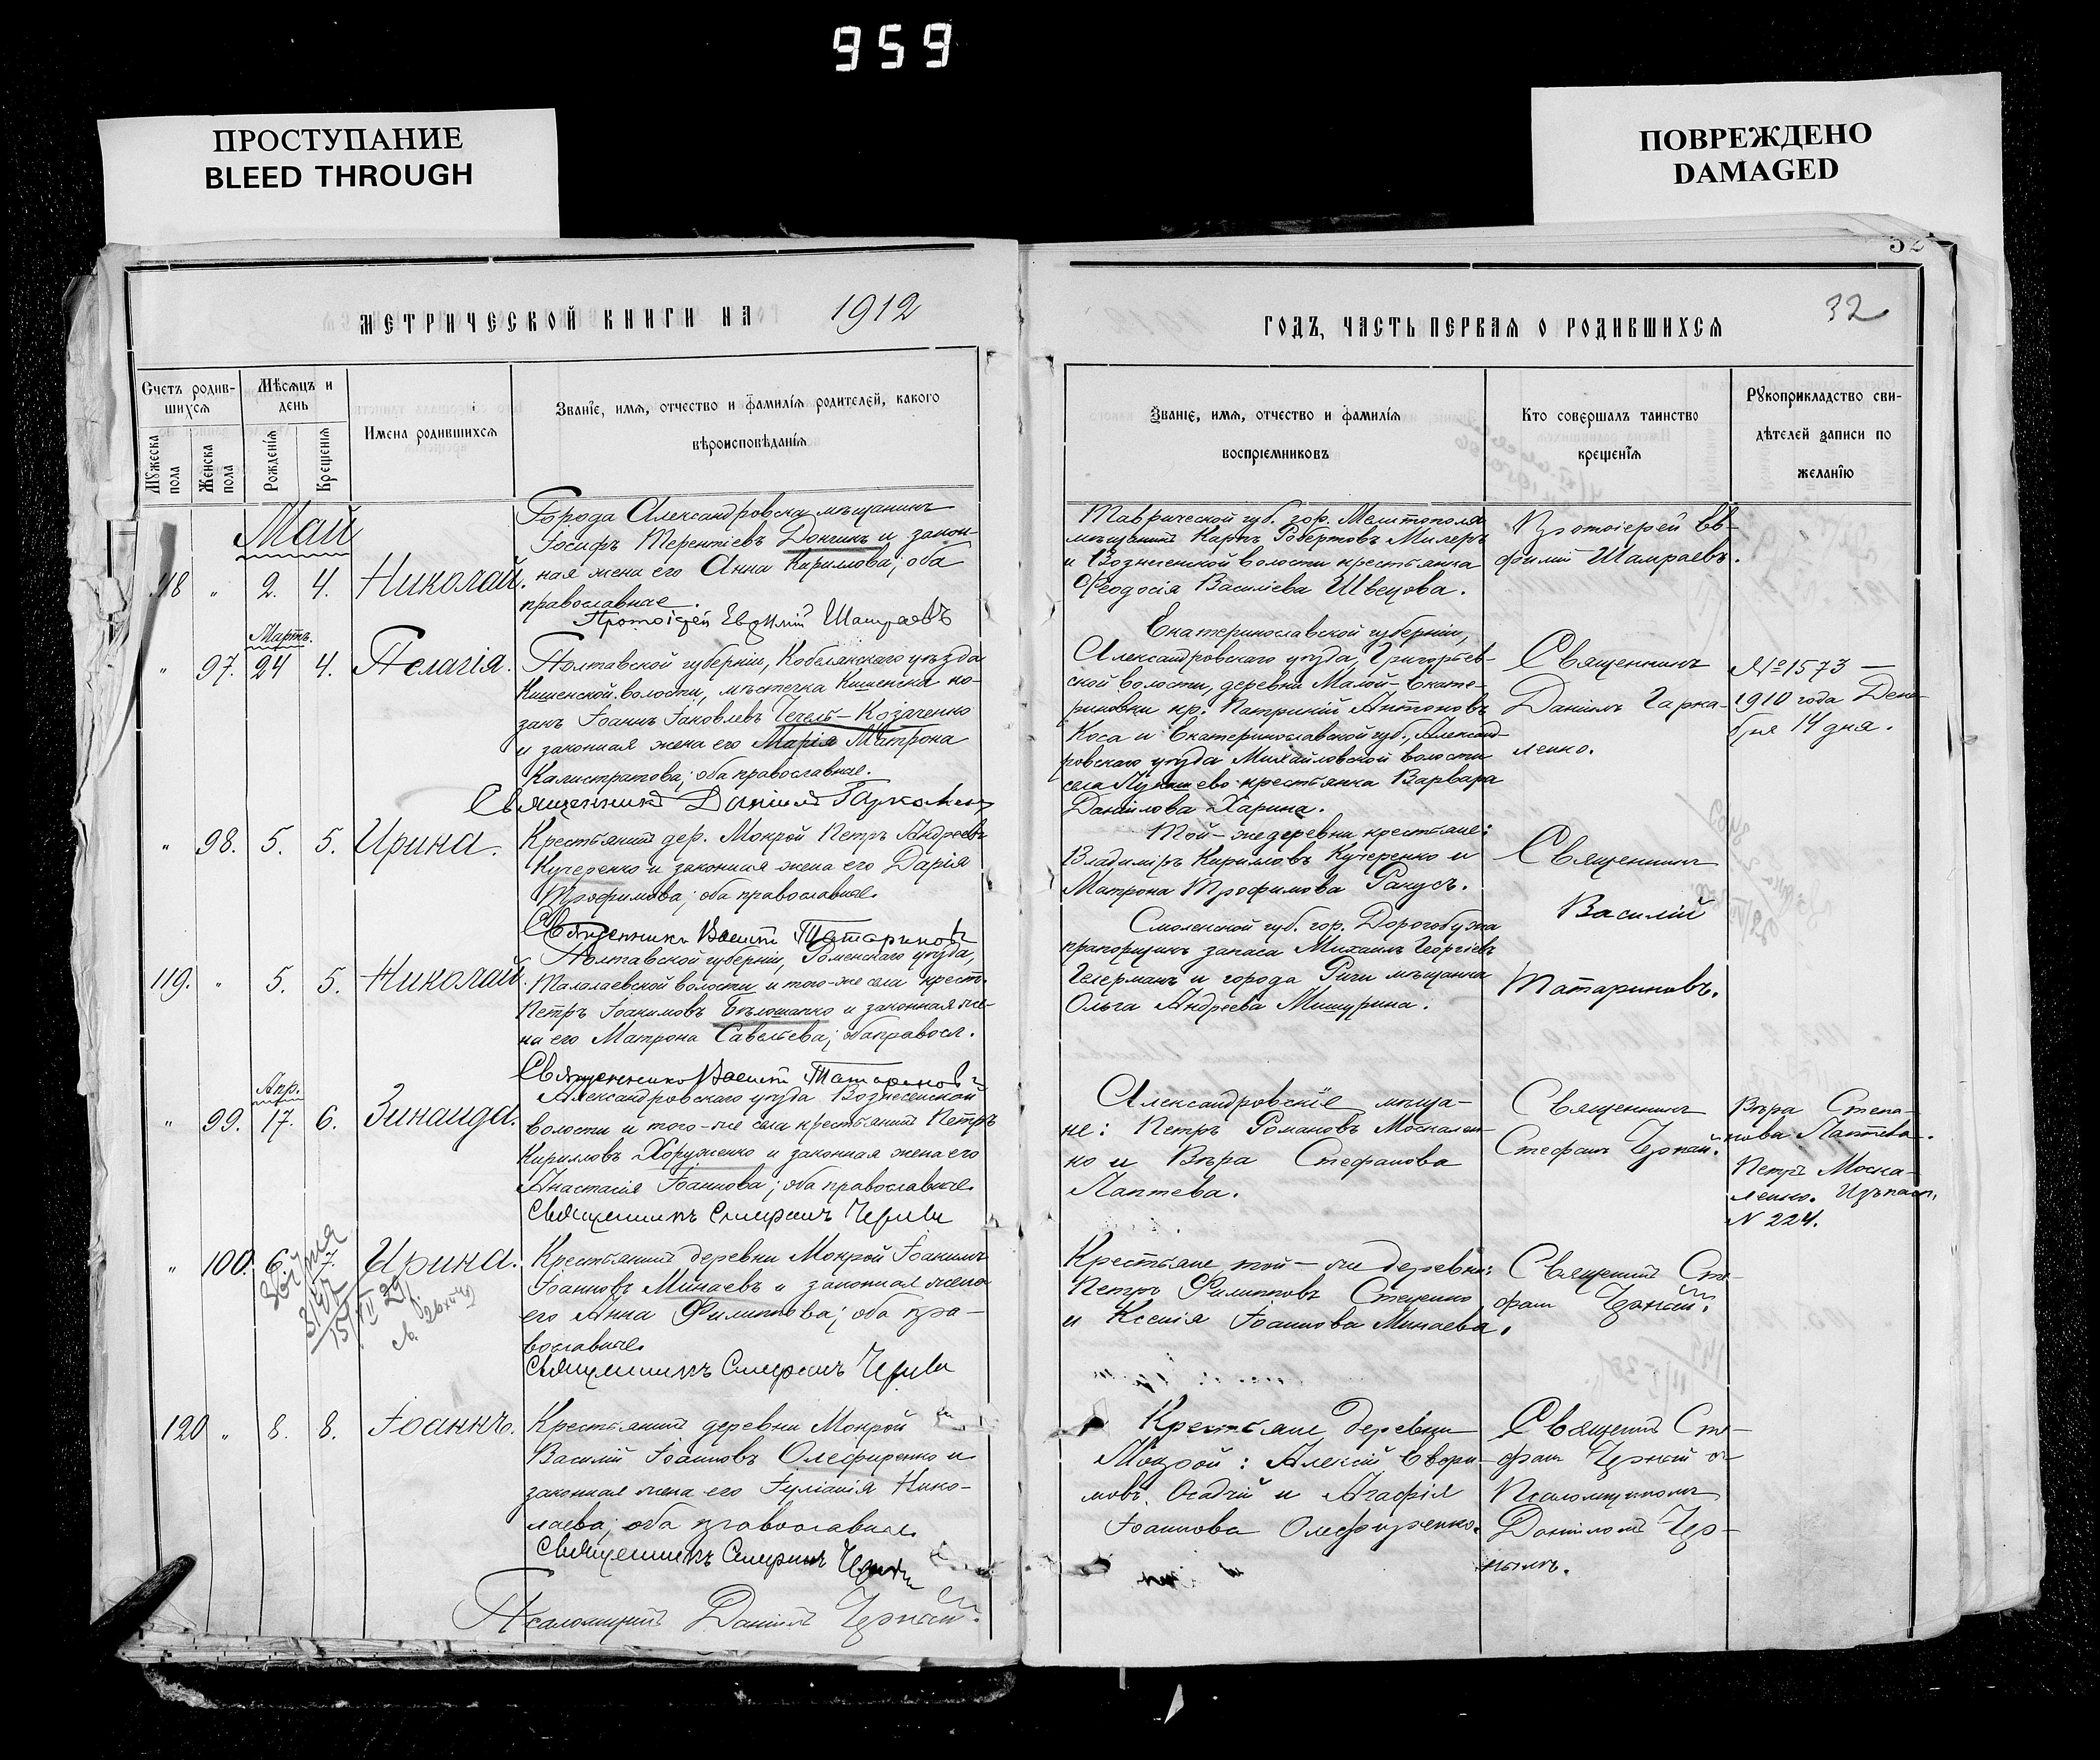 959
ПРОСТУПАНИЕ
BLEED THROUGH
ПОВРЕЖДЕНО
DAMAGED
МЕТРИЧЕСКОЙ КНИГИ НА 1912
Счетъ родив-
шихся
Мѣсяцъ и
день
Мужеска
пола
Женска
пола
Рожденія
Крещенія
Имена родившихся
Званіе, имя, отчество и фамилія родителей, какого
вѣроисповѣданія
Май
118 " 2. 4. Николай.
Города Александровска мѣщанинъ
Іосифъ Терентіевъ Дончикъ и закон-
ная жена его Анна Кириллова; оба
православные.
Протоіерей Евфимій Шамраевъ
Мартъ.
" 97. 24 4. Пелагія.
Полтавской губерніи, Кобелякскаго уѣзда
Кишенской волости, мѣстечка Кишенки ко-
закъ Іоаннъ Іаковлевъ Чечель-Козаченко
и законная жена его Марія Матрона
Калистратова; оба православные.
Священникъ Даніилъ Гаркаленко
" 98. 5. 5. Ирина.
Крестьянинъ дер. Мокрой Петръ Андреевъ
Кучеренко и законная жена его Дарія
Трофимова; оба православные.
Священникъ Василій Татариновъ
119. " 5. 5. Николай.
Полтавской губерніи, Роменскаго уѣзда,
Талалаевской волости и того-же села крест.
Петръ Іоакимовъ Бѣлошапко и законная же-
на его Матрона Савельева; оба правосл.
Священникъ Василій Татариновъ
Апр.
" 99. 17. 6. Зинаида.
Александровскаго уѣзда Вознесенской
волости и того-же села крестьянинъ Петръ
Кирилловъ Хоруженко и законная жена его
Анастасія Іоаннова; оба православные.
Священникъ Стефанъ Черный
" 100. 6. 7. Ирина.
Крестьянинъ деревни Мокрой Іоакимъ
Іоанновъ Минаевъ и законная жена
его Анна Филиппова; оба пра-
вославные.
Священникъ Стефанъ Черный
120 " 8. 8. Іоаннъ.
Крестьянинъ деревни Мокрой
Василій Іоанновъ Олефиренко и
законная жена его Іуліанія Нико-
лаева; оба православные.
Священникъ Стефанъ Черный
Псаломщикъ Даніилъ Черный.
32
ГОДЪ, ЧАСТЬ ПЕРВАЯ О РОДИВШИХСЯ
Званіе, имя, отчество и фамилія
воспріемниковъ
Кто совершалъ таинство
крещенія
Рукоприкладство сви-
дѣтелей записи по
желанію
Таврической губ. гор. Мелитополя
мѣщанинъ Карпъ Робертовъ Милеръ
и Вознесенской волости крестьянка
Феодосія Василіева Швецова.
Протоіерей Ев-
фимій Шамраевъ.
Екатеринославской губерніи,
Александровскаго уѣзда, Григорьев-
ской волости, деревни Малой-Екате-
риновки кр. Патрикій Антоновъ
Коса и Екатеринославской губ., Александ-
ровскаго уѣзда Михайловской волости
села крестьянка Варвара
Даніилова Харина.
Священникъ
Даніилъ Гарка-
ленко.
№ 1573 —
1910 года Дека-
бря 14 дня.
Той-же деревни крестьяне:
Владиміръ Кирилловъ Кучеренко и
Матрона Трофимова Ракусъ.
Священникъ
Василій
Татариновъ.
Смоленской губ. гор. Дорогобужа
прапорщикъ запаса Михаилъ Георгіевъ
Гелерманъ и города Риги мѣщанка
Ольга Андреева Мишурина.
Александровскіе мѣща-
не: Петръ Романовъ Москален-
ко и Вѣра Стефанова
Лаптева.
Священникъ
Стефанъ Черный.
Вѣра Степа-
нова Лаптева.
Петръ Моска-
ленко.
N 224.
Крестьяне той-же деревни:
Петръ Филипповъ Стеценко
и Ксенія Іоаннова Минаева.
Священникъ Сте-
фанъ Черный.
Крестьяне деревни
Мокрой: Алексій Евфи-
мовъ Осадчій и Агафія
Іоаннова Олефиренко.
Священникъ Сте-
фанъ Черный съ
Псаломщикомъ
Даніиломъ Чер-
нымъ.